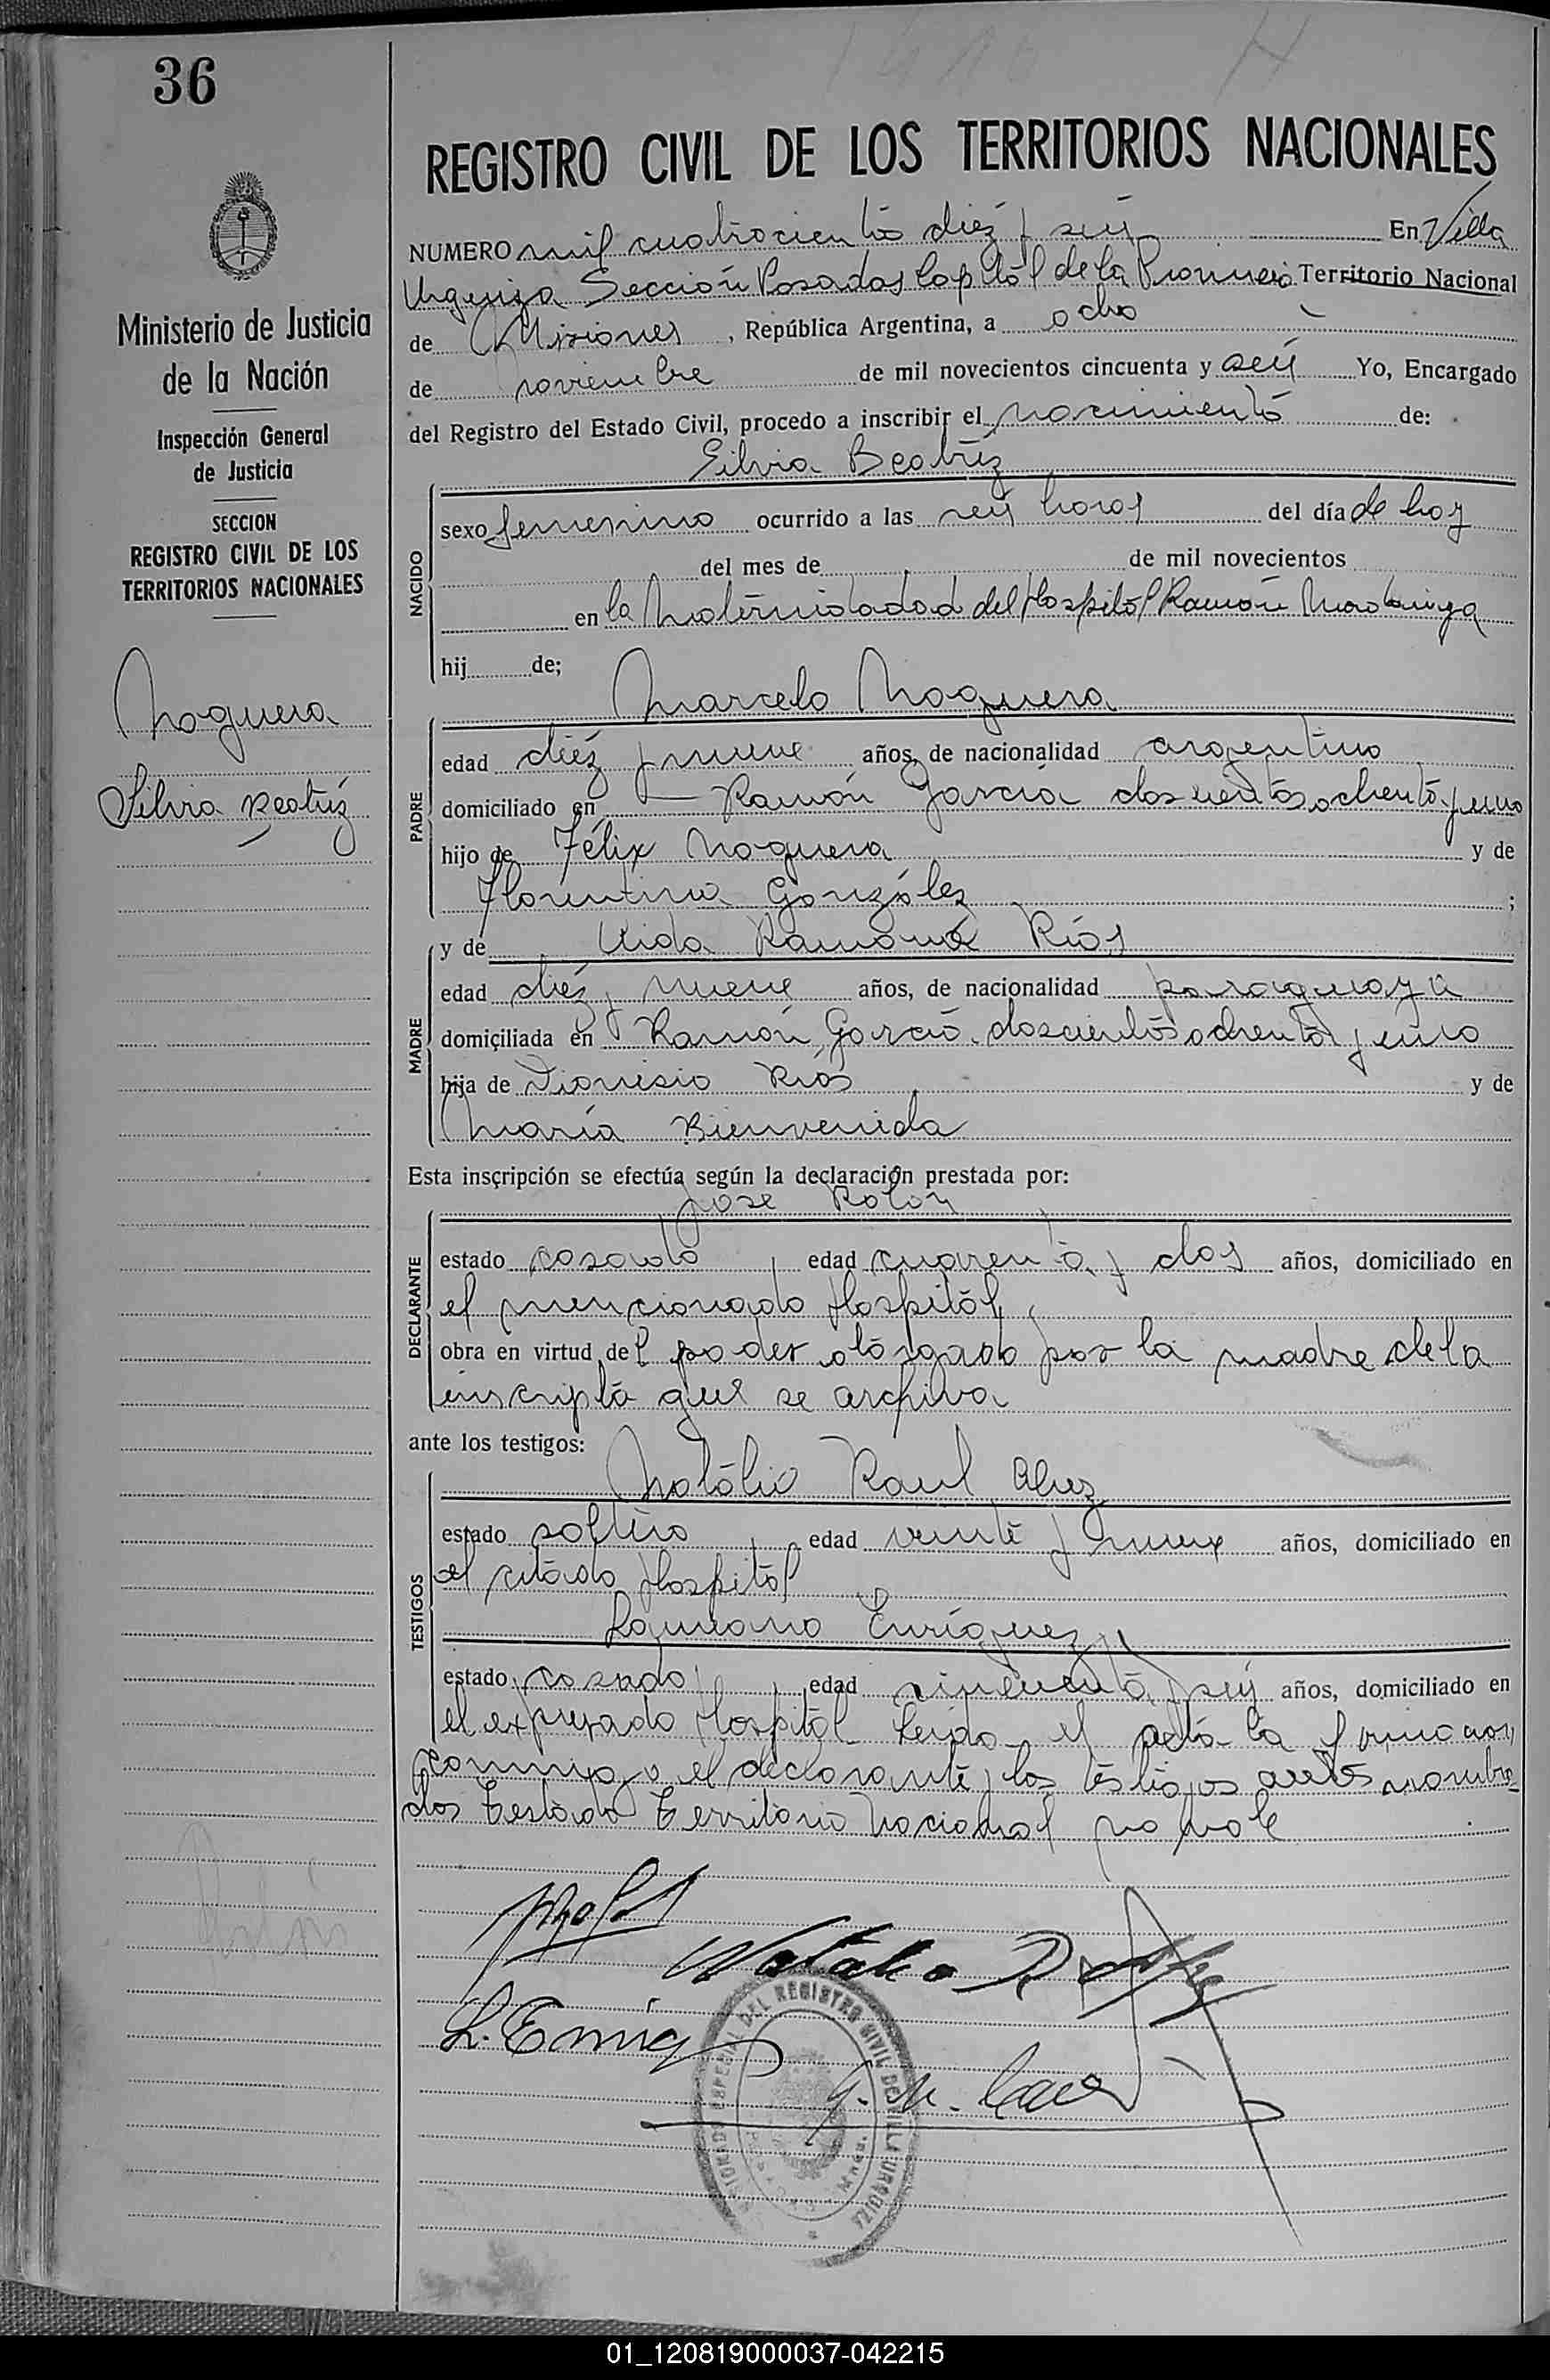 36
REGISTRO CIVIL DE LOS TERRITORIOS NACIONALES
NUMERO mil cuatrocientos diez y seis En Villa
Urquiza Sección Posadas Capitál de la Provincia Territorio Nacional
de Misiones, República Argentina, a ocho
de noviembre de mil novecientos cincuenta y seis Yo, Encargado
del Registro del Estado Civil, procedo a inscribir el nacimiento de:
Silvia Beatriz
NACIDO
sexo femenino ocurrido a las seis horas del día de hoy
del mes de de mil novecientos
en la Maternidadad del Hospitál Ramón Madariaga
hij de;
Marcelo Noguera
PADRE
edad diéz y nueve años, de nacionalidad argentino
domiciliado en Ramón García doscientos ochenta y uno
hijo de Félix Noguera y de
Florentina González ;
y de Aida Ramona Ríos
MADRE
edad diéz y nueve años, de nacionalidad paraguaya
domiciliada en Ramón García doscientos ochenta y uno
hija de Dionisio Ríos y de
María Bienvenida
Esta inscripción se efectúa según la declaración prestada por:
José Rolón
DECLARANTE
estado casado edad cuarenta y dos años, domiciliado en
el mencionado Hospitál
obra en virtud del poder otorgado por la madre de la
inscripta que se archiva
ante los testigos:
Natálio Raul
TESTIGOS
estado soltero edad veinte y nueve años, domiciliado en
el citado Hospitál
Enríquez
estado casado edad cincuenta y seis años, domiciliado en
el expresado Hospitál Leida el acta la firmaron
conmigo el declarante y los testigos antes nombra-
dos Testado Territorio Nacional no vale
Ministerio de Justicia
de la Nación
Inspección General
de Justicia
SECCION
REGISTRO CIVIL DE LOS
TERRITORIOS NACIONALES
Noguera
Silvia Beatríz
L. Enriq
DEL REGISTRO CIVIL DE VILLA URQUIZA
01_120819000037-042215